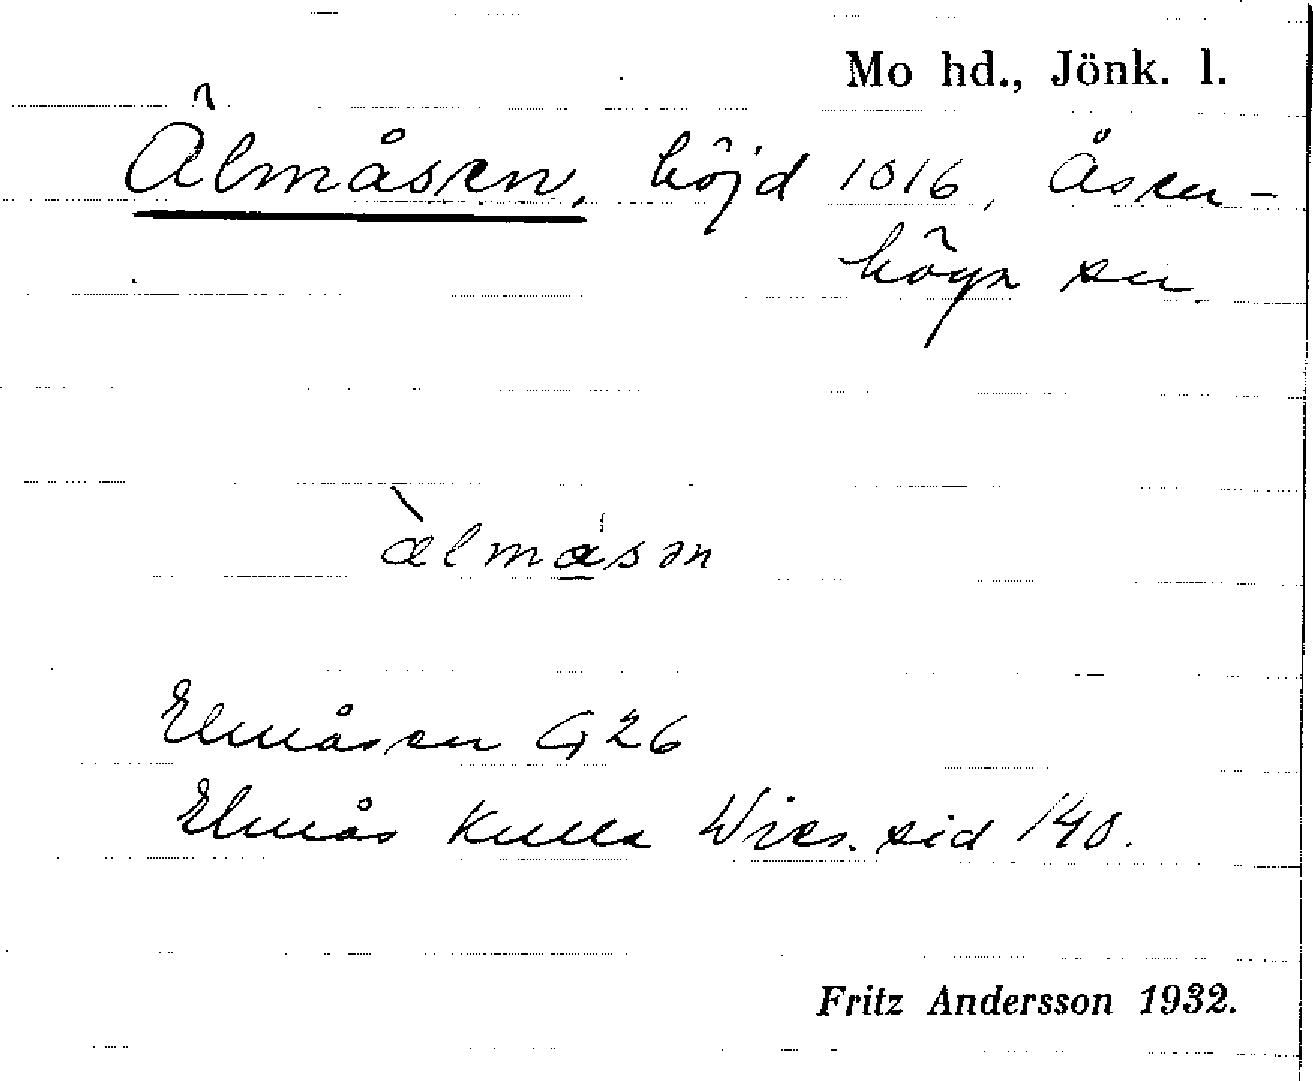 Mo hd., Jönk. l.
Älmåsen, höjd 1016, Åsen-
höga sn.
ælmåsən
Elmåsen G 26
Elmås Kulla Wies. sid 140.
Fritz Andersson 1932.